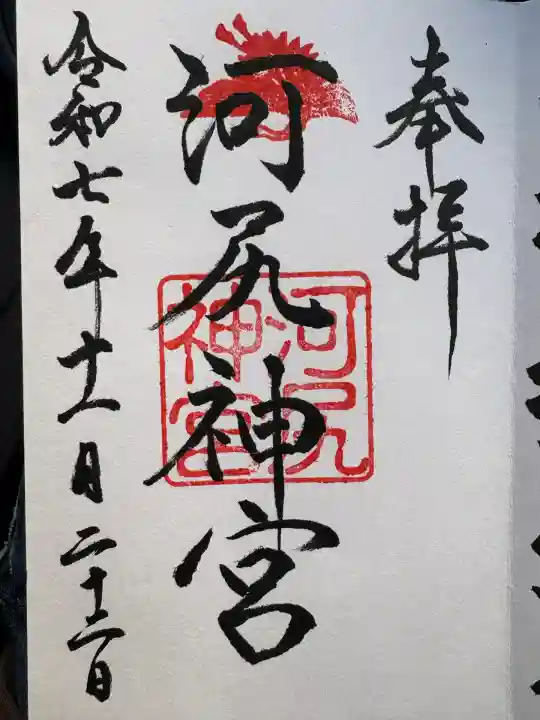 奉拝
河尻神宮
河尻
神宮
令和七年十一月二十三日